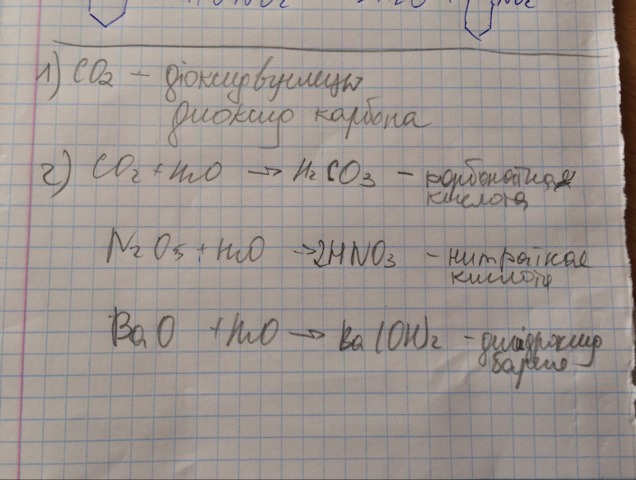 1) CO2 – діоксид вуглецю
диоксид карбона
2) CO2 + H2O → H2CO3 – карбонатная
кислота
N2O5 + H2O → 2HNO3 – нитратная
кислота
BaO + H2O → Ba(OH)2 – дигидроксид
бария